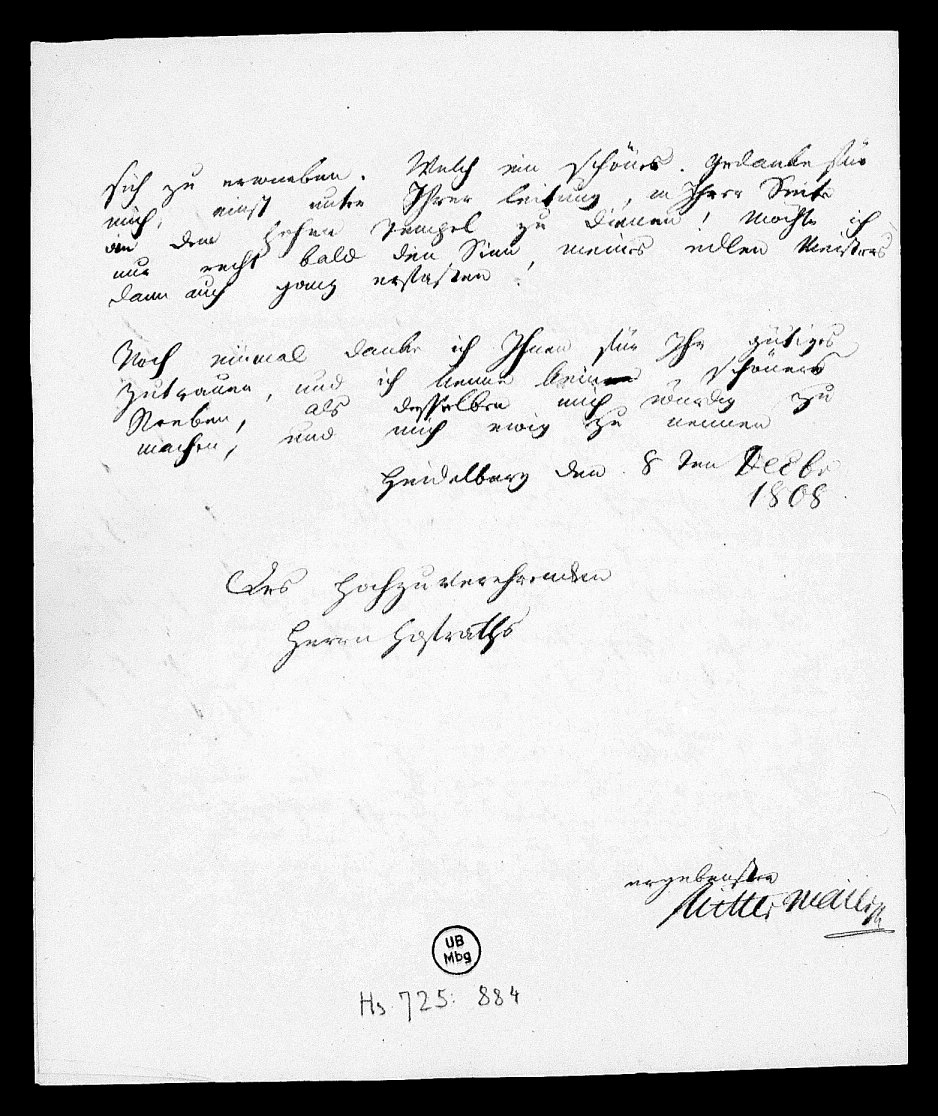 sich zu erwerben. Welch ein schöner Gedanke für
mich, einst unter Ihrer Leitung, an Ihrer Seite
in dem hohen Tempel zu dienen! Möchte ich
nur recht bald den Sinn meines edlen Meisters
dann auch ganz erfassen!
Noch einmal danke ich Ihnen für Ihr gütiges
Zutrauen, und ich kenne kein schöneres
Streben, als desselben mich würdig zu
machen, und mich ewig zu nennen
Heidelberg den 8 ten Decbr
1808.
Des Hochzuverehrenden
Herrn Hofraths
ergebenster
Mittermaier
UB
Mbg
Hs 725: 884